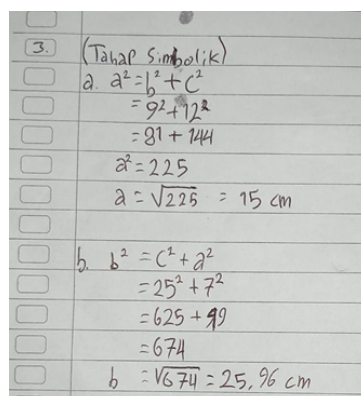 3. (Tahap Simbolik)
a. a² = b² + c²
= 9² + 12²
= 81 + 144
a² = 225
a = √225 = 15 cm
b. b² = c² + a²
= 25² + 7²
= 625 + 49
= 674
b = √674 = 25,96 cm